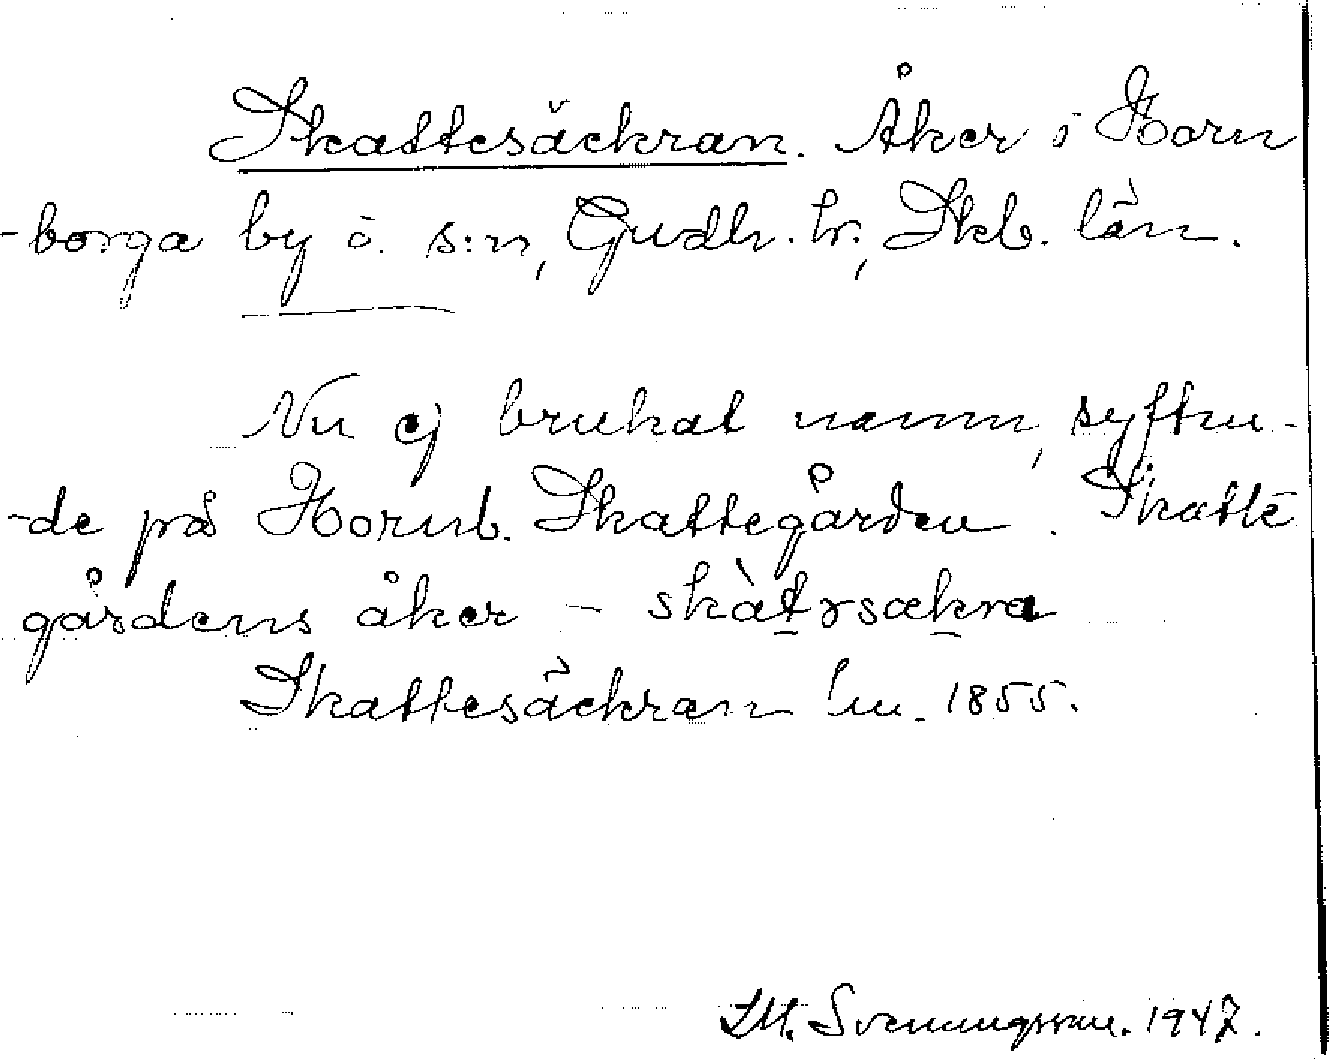 Skattesäckran. Åker i Horn
-borga by o. s:n, Gudh. hr., Skb. län.
Nu ej brukat namn, syftan-
-de på Hornb. Skattegården. Skatte
gårdens åker - skàtɤsækra
Skattesäckran lm. 1855.
Svenungsson. 1947.